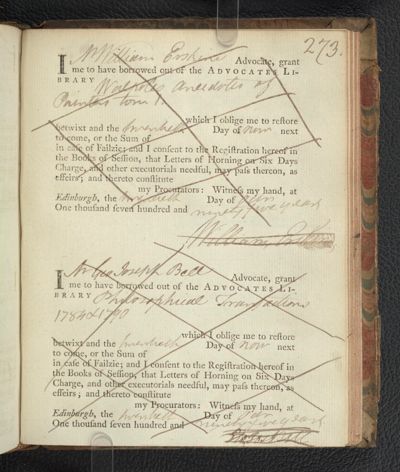 273.
I Mr William Erskine Advocate, grant
me to have borrowed out of the ADVOCATES LI-
BRARY Walpoles Anecdotes of
Painters tom 1.
which I oblige me to restore
betwixt and the Day of now next
to come, or the Sum of
in case of Failzie; and I consent to the Registration hereof in
the Books of Session, that Letters of Horning on Six Days
Charge, and other executorials needful, may pass thereon, as
effeirs; and thereto constitute
my Procurators: Witness my hand, at
Edinburgh, the Day of
One thousand seven hundred and ninety five years
William Erskine
I Mr Geo: Joseph Bell Advocate, grant
me to have borrowed out of the ADVOCATES LI-
BRARY Philosophical Transactions
1789 & 1790
which I oblige me to restore
betwixt and the Day of now next
to come, or the Sum of
in case of Failzie; and I consent to the Registration hereof in
the Books of Session, that Letters of Horning on Six Days
Charge, and other executorials needful, may pass thereon, as
effeirs; and thereto constitute
my Procurators: Witness my hand, at
Edinburgh, the Day of
One thousand seven hundred and ninety five years